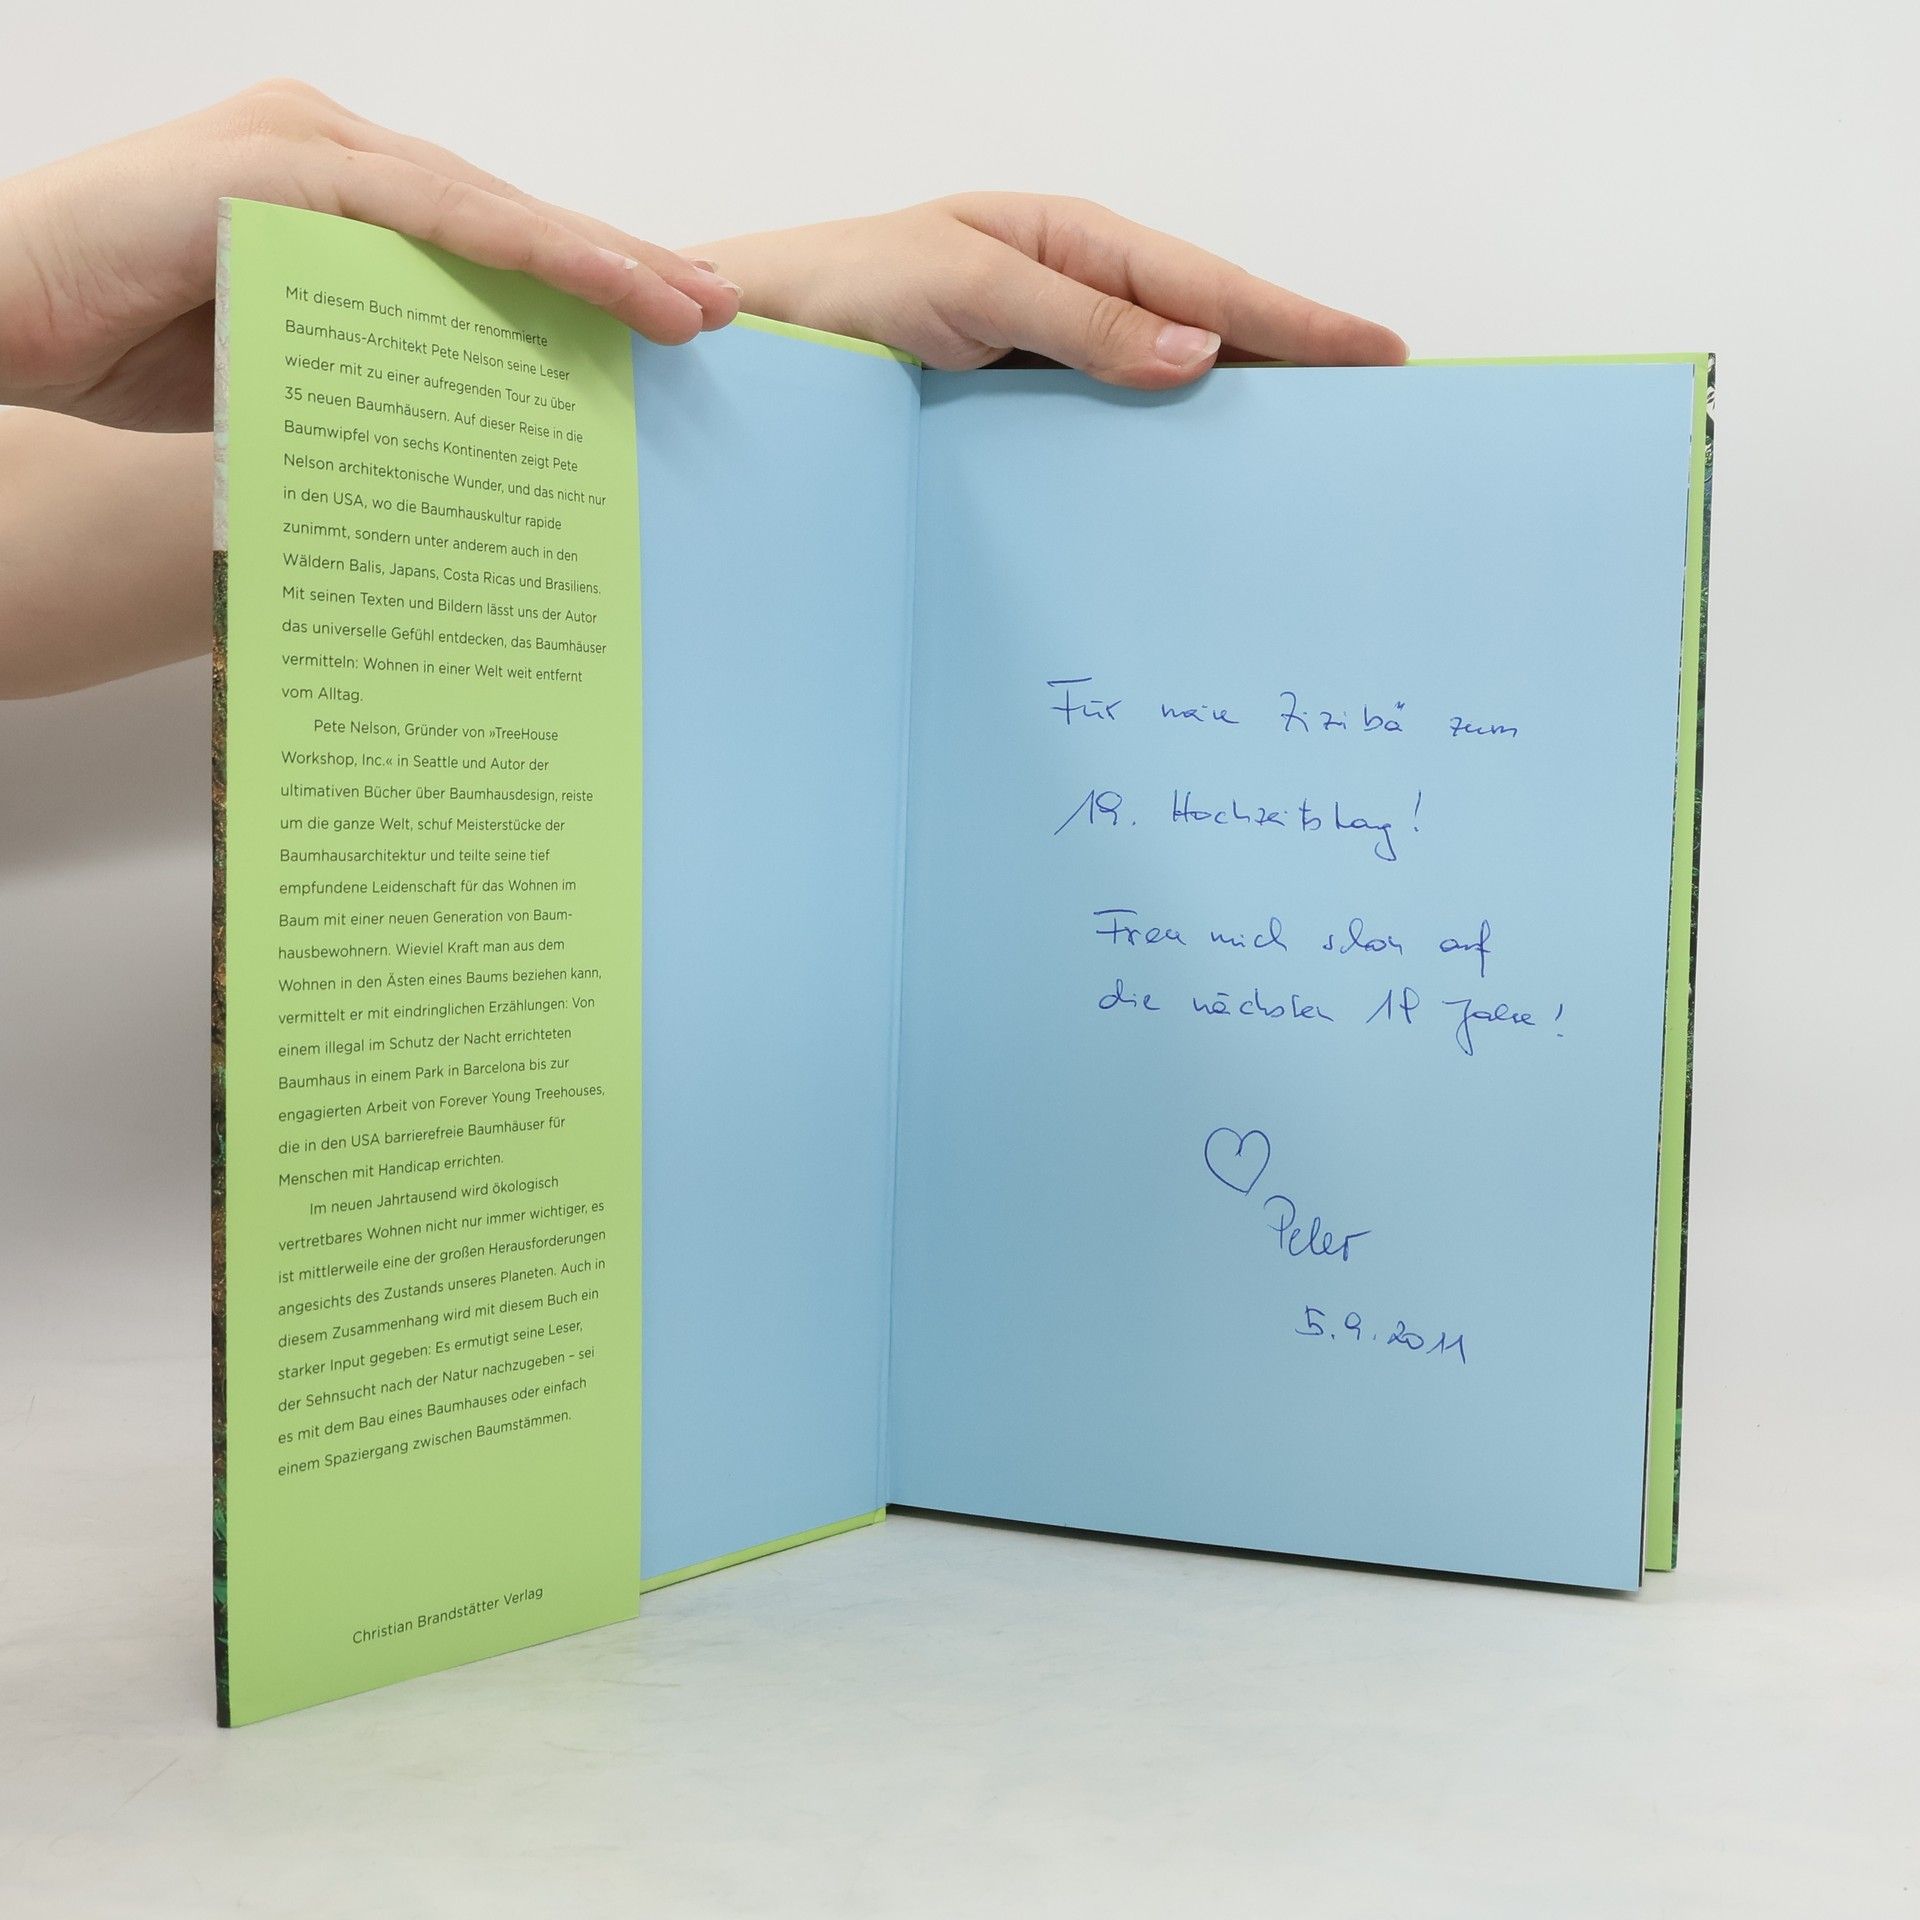 Mit diesem Buch nimmt der renommierte
Baumhaus-Architekt Pete Nelson seine Leser
wieder mit zu einer aufregenden Tour zu über
35 neuen Baumhäusern. Auf dieser Reise in die
Baumwipfel von sechs Kontinenten zeigt Pete
Nelson architektonische Wunder, und das nicht nur
in den USA, wo die Baumhauskultur rapide
zunimmt, sondern unter anderem auch in den
Wäldern Balis, Japans, Costa Ricas und Brasiliens.
Mit seinen Texten und Bildern lässt uns der Autor
das universelle Gefühl entdecken, das Baumhäuser
vermitteln: Wohnen in einer Welt weit entfernt
vom Alltag.
Pete Nelson, Gründer von »TreeHouse
Workshop, Inc.« in Seattle und Autor der
ultimativen Bücher über Baumhausdesign, reiste
um die ganze Welt, schuf Meisterstücke der
Baumhausarchitektur und teilte seine tief
empfundene Leidenschaft für das Wohnen im
Baum mit einer neuen Generation von Baum-
hausbewohnern. Wieviel Kraft man aus dem
Wohnen in den Ästen eines Baums beziehen kann,
vermittelt er mit eindringlichen Erzählungen: Von
einem illegal im Schutz der Nacht errichteten
Baumhaus in einem Park in Barcelona bis zur
engagierten Arbeit von Forever Young Treehouses,
die in den USA barrierefreie Baumhäuser für
Menschen mit Handicap errichten.
Im neuen Jahrtausend wird ökologisch
vertretbares Wohnen nicht nur immer wichtiger, es
ist mittlerweile eine der großen Herausforderungen
angesichts des Zustands unseres Planeten. Auch in
diesem Zusammenhang wird mit diesem Buch ein
starker Input gegeben: Es ermutigt seine Leser,
der Sehnsucht nach der Natur nachzugeben – sei
es mit dem Bau eines Baumhauses oder einfach
einem Spaziergang zwischen Baumstämmen.
Christian Brandstätter Verlag
Für meine Zizibä zum
19. Hochzeitstag!
Freu mich schon auf
die nächsten 19 Jahre!
Peter
5.9.2011